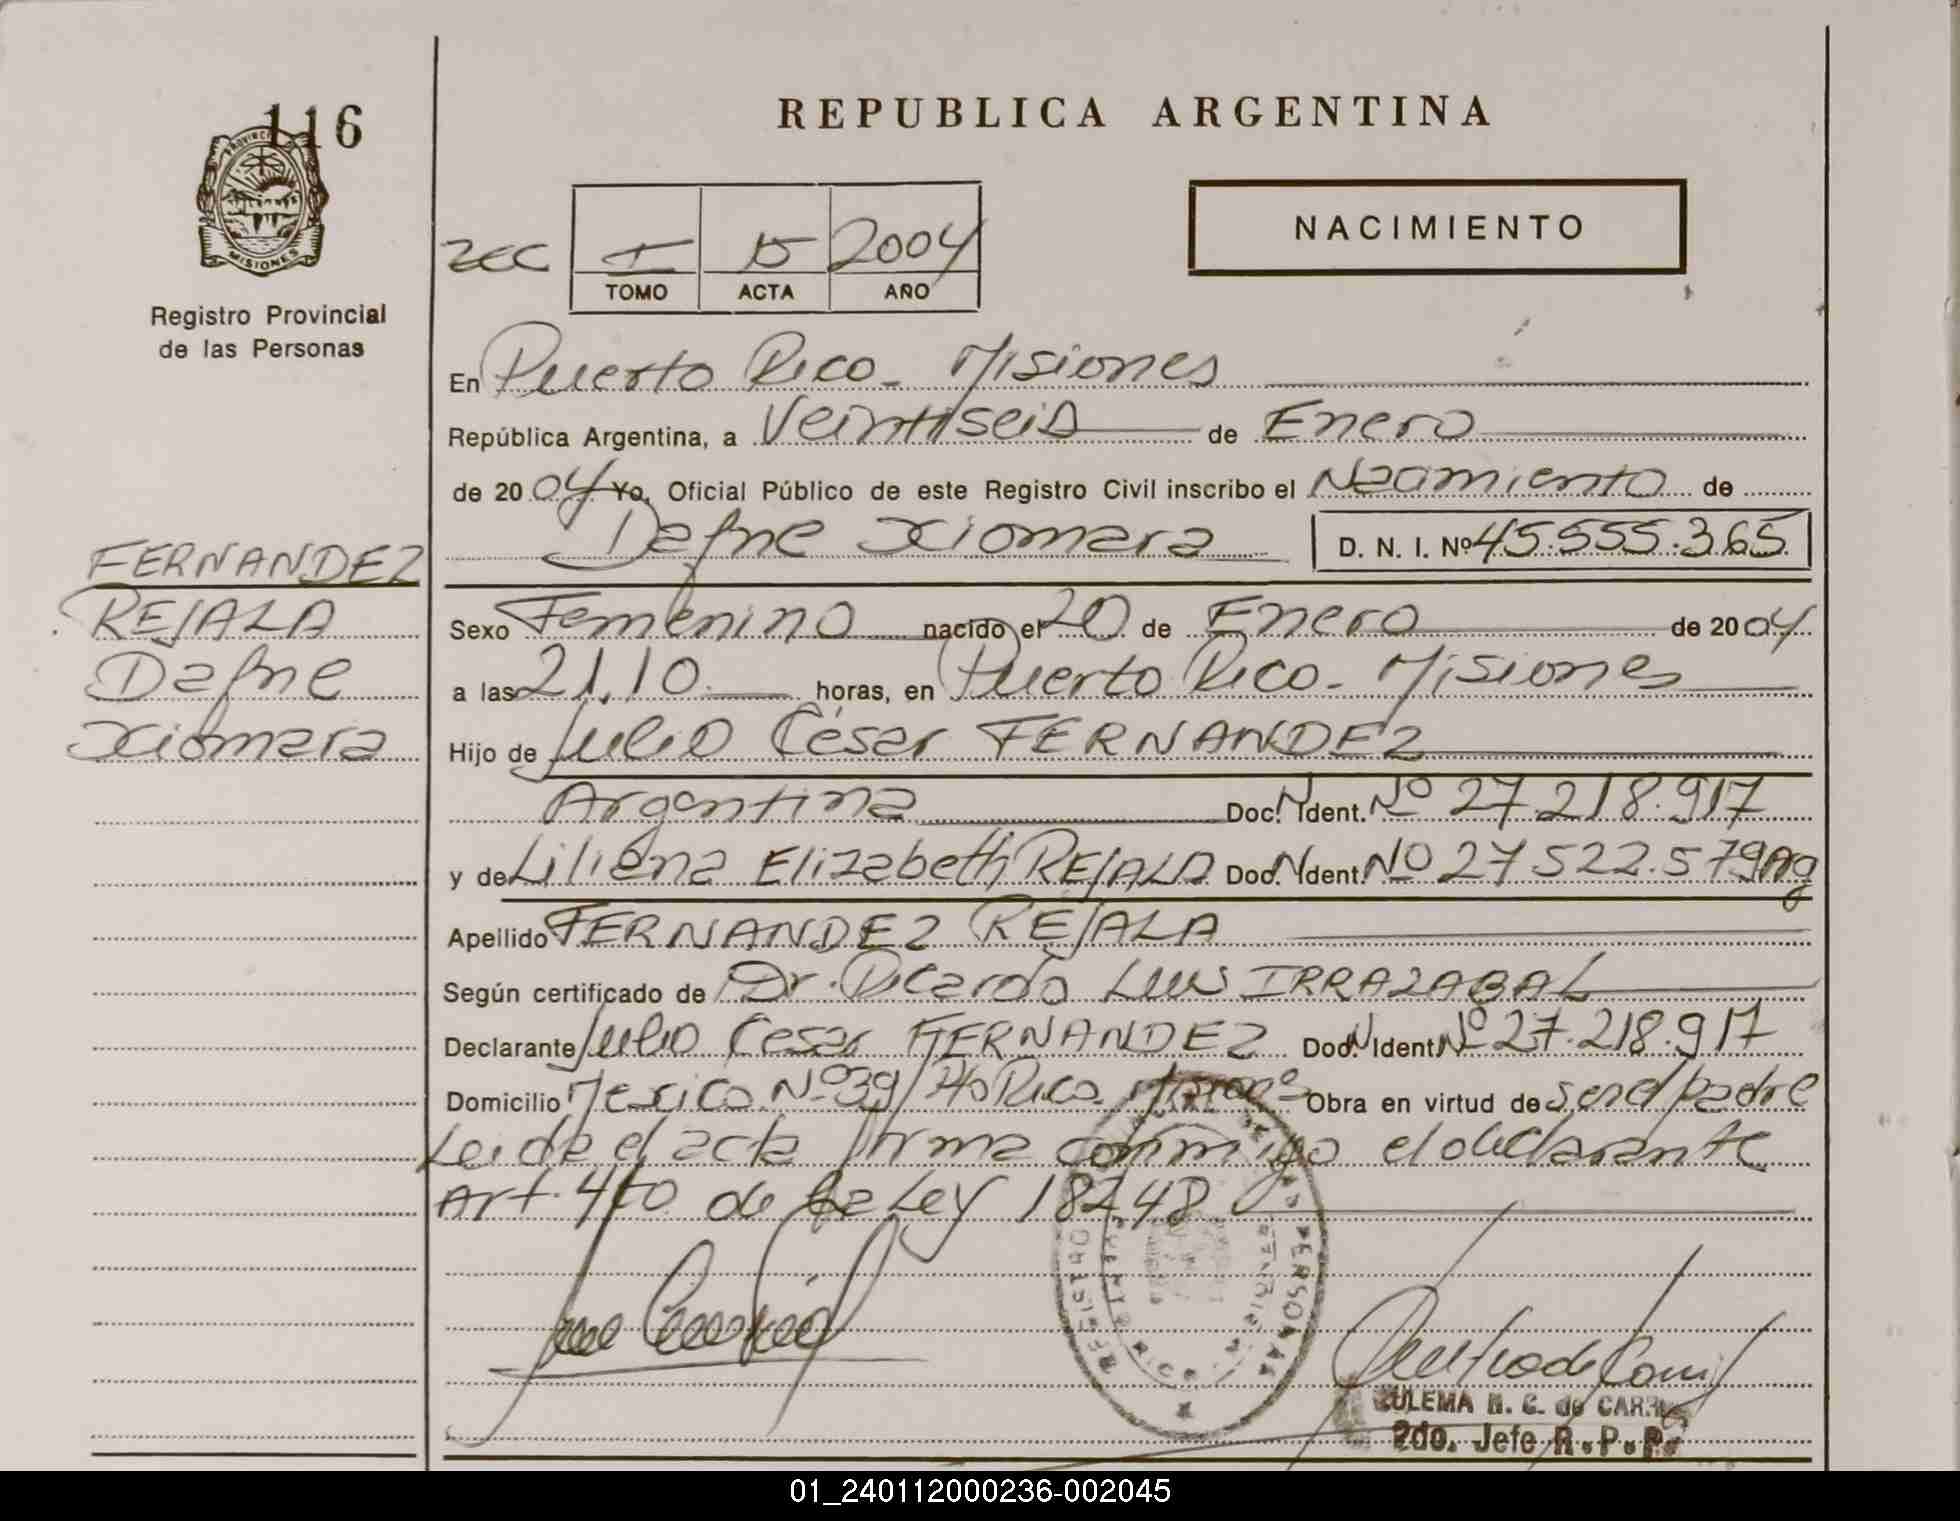 116
PROVINCIA
MISIONES
Registro Provincial
de las Personas
FERNANDEZ
REJALA
Dafne
Xiomara
REPUBLICA ARGENTINA
NACIMIENTO
I 15 2004
TOMO ACTA AÑO
En Puerto Rico - Misiones
República Argentina, a Veintiseis de Enero
de 2004 Yo, Oficial Público de este Registro Civil inscribo el Nacimiento de
Dafne Xiomara D. N. I. Nº 45.555.365
Sexo Femenino nacido el 20 de Enero de 2004
a las 21.10 horas, en Puerto Rico - Misiones
Hijo de Julio César FERNANDEZ
Argentina Doc. N Ident. Nº 27.218.917
y de Liliana Elizabeth REJALA Doc. N Ident. Nº 27.522.579 Arg
Apellido FERNANDEZ REJALA
Según certificado de Dr. Ricardo Luis IRRAZABAL
Declarante Julio Cesar FERNANDEZ Doc. N Ident. Nº 27.218.917
Domicilio Mexico Nº 39/ Pto Rico - Obra en virtud de ser el padre
Leida el acta firma conmigo el declarante
Art. de la Ley 18248
REGISTRO PERSONAS
ZULEMA N. G. de
2do. Jefe R. P. P.
01_240112000236-002045